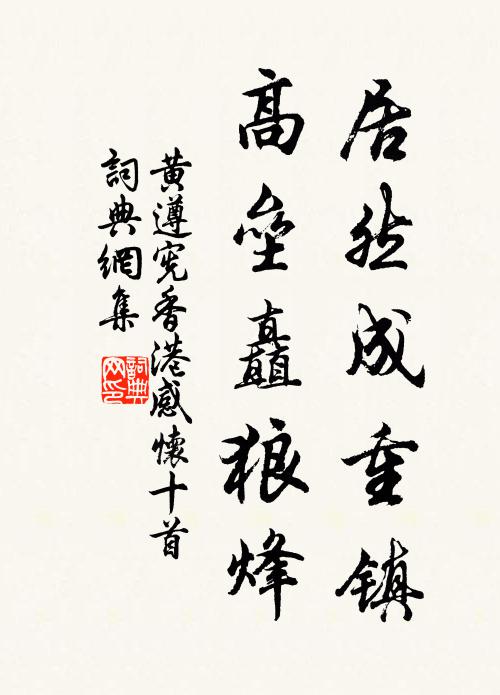 居然成重鎮
高壘矗狼烽
黃遵宪香港感懷十首
詞典網集
詞典网印